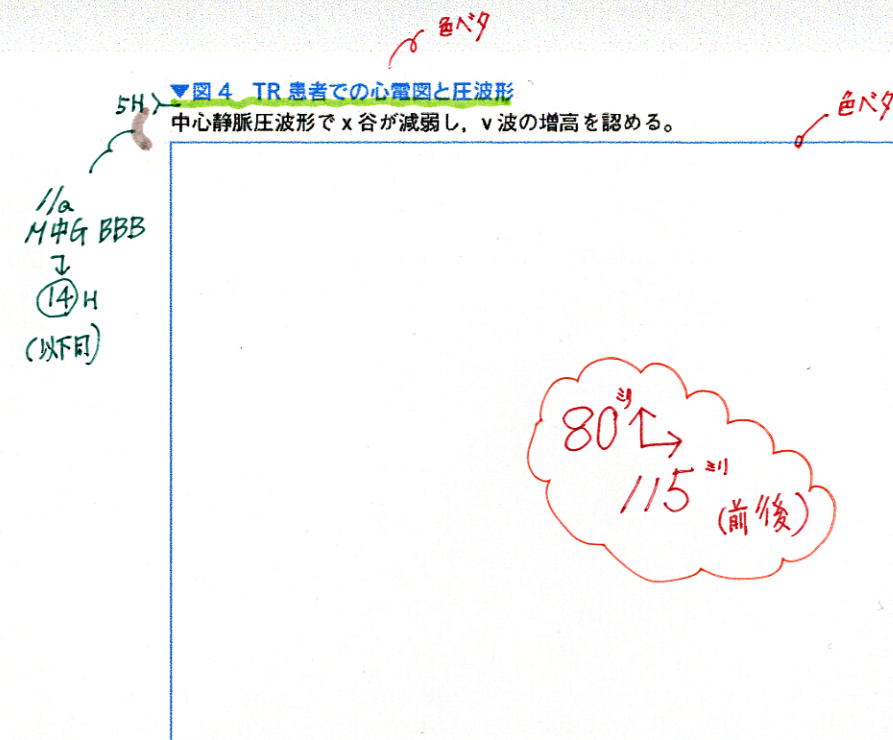 色ベタ
▼図4 TR患者での心電図と圧波形
5H
中心静脈圧波形でx谷が減弱し,v波の増高を認める。
色ベタ
11Q
M中G BBB
↓
14 H
(以下同)
80ミリ
115ミリ
(前後)